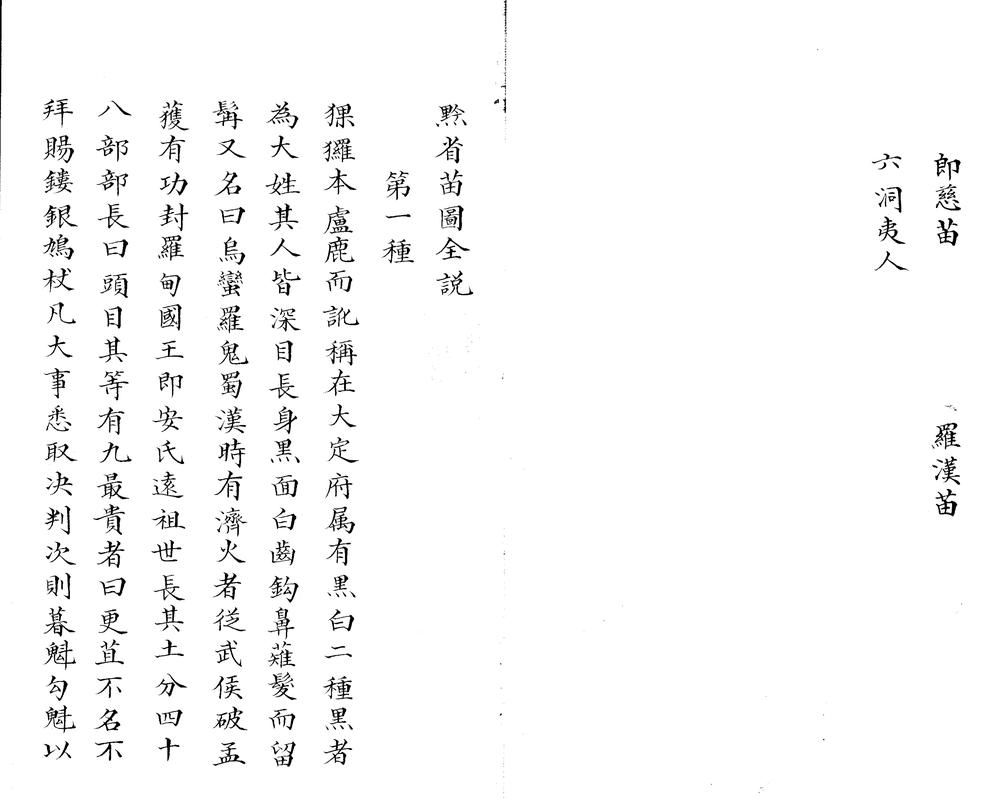 郎慈苗　羅漢苗
六洞夷人
黔省苗圖全説
第一種
猓玀本盧鹿而訛稱在大定府属有黒白二種黒者
為大姓其人皆深目長身黒面白齒鈎鼻薙髮而留
髯又名曰烏蠻羅鬼蜀漢時有濟火者從武侯破孟
獲有功封羅甸國王即安氏遠祖世長其土分四十
八部部長曰頭目其等有九最貴者曰更苴不名不
拜賜鏤銀鳩杖凡大事悉取决判次則暮魁勾魁以